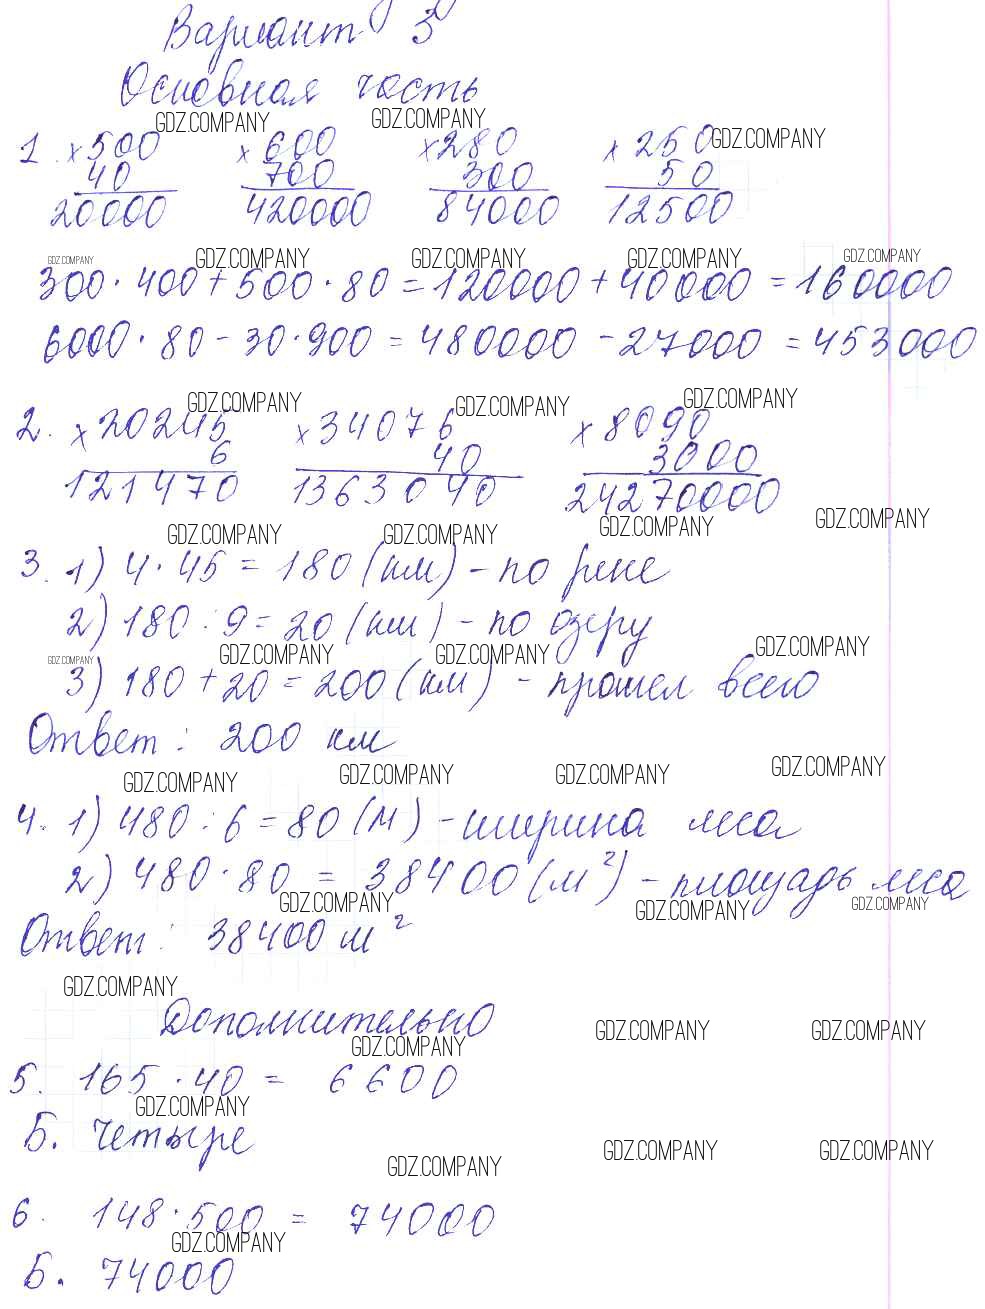 Вариант 3
Основная часть
GDZ.COMPANY GDZ.COMPANY
1. × 500 × 600 × 280 × 250 GDZ.COMPANY
40 700 300 50
20000 420000 84000 12500
GDZ.COMPANY GDZ.COMPANY GDZ.COMPANY GDZ.COMPANY GDZ.COMPANY
300 · 400 + 500 · 80 = 120000 + 40000 = 160000
6000 · 80 - 30 · 900 = 480000 - 27000 = 453000
GDZ.COMPANY GDZ.COMPANY GDZ.COMPANY
2. × 20245 × 34076 × 8090
6 40 3000
121470 1363040 24270000
GDZ.COMPANY GDZ.COMPANY GDZ.COMPANY GDZ.COMPANY
3. 1) 4 · 45 = 180 (км) - по реке
2) 180 : 9 = 20 (км) - по озеру
GDZ.COMPANY GDZ.COMPANY GDZ.COMPANY GDZ.COMPANY
3) 180 + 20 = 200 (км) - прошел всего
Ответ: 200 км
GDZ.COMPANY GDZ.COMPANY GDZ.COMPANY GDZ.COMPANY
4. 1) 480 : 6 = 80 (м) - ширина леса
2) 480 · 80 = 38400 (м²) - площадь леса
GDZ.COMPANY GDZ.COMPANY GDZ.COMPANY
Ответ: 38400 м²
GDZ.COMPANY
Дополнительно
GDZ.COMPANY GDZ.COMPANY GDZ.COMPANY
5. 165 · 40 = 6600
GDZ.COMPANY
Б. Четыре
GDZ.COMPANY GDZ.COMPANY GDZ.COMPANY
6. 148 · 500 = 74000
GDZ.COMPANY
Б. 74000